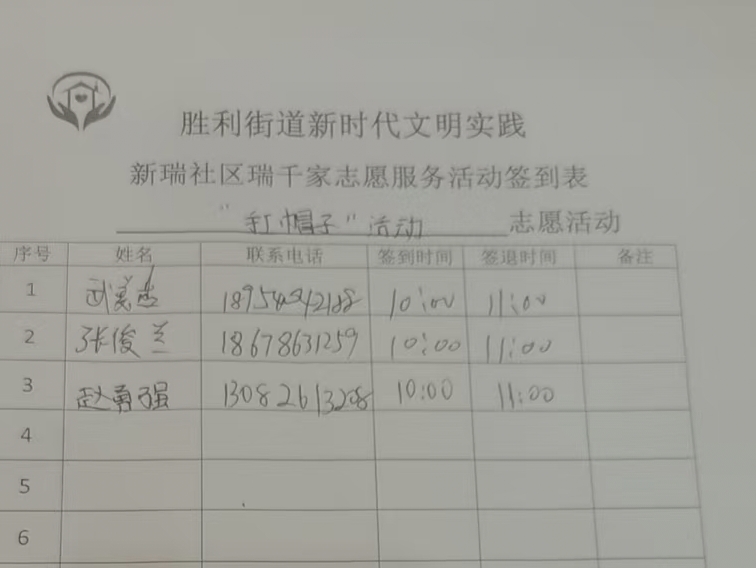 胜利街道新时代文明实践
新瑞社区瑞千家志愿服务活动签到表
"红帽子"活动 志愿活动
序号 姓名 联系电话 签到时间 签退时间 备注
1 武 10:00 11:00
2 张俊兰 18678631259 10:00 11:00
3 赵勇强 13082613208 10:00 11:00
4
5
6